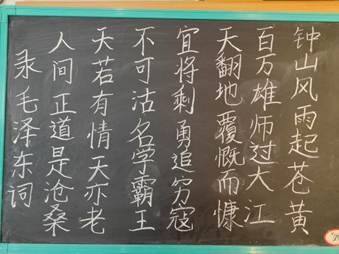 钟山风雨起苍黄
百万雄师过大江
天翻地覆慨而慷
宜将剩勇追穷寇
不可沽名学霸王
天若有情天亦老
人间正道是沧桑
录毛泽东词